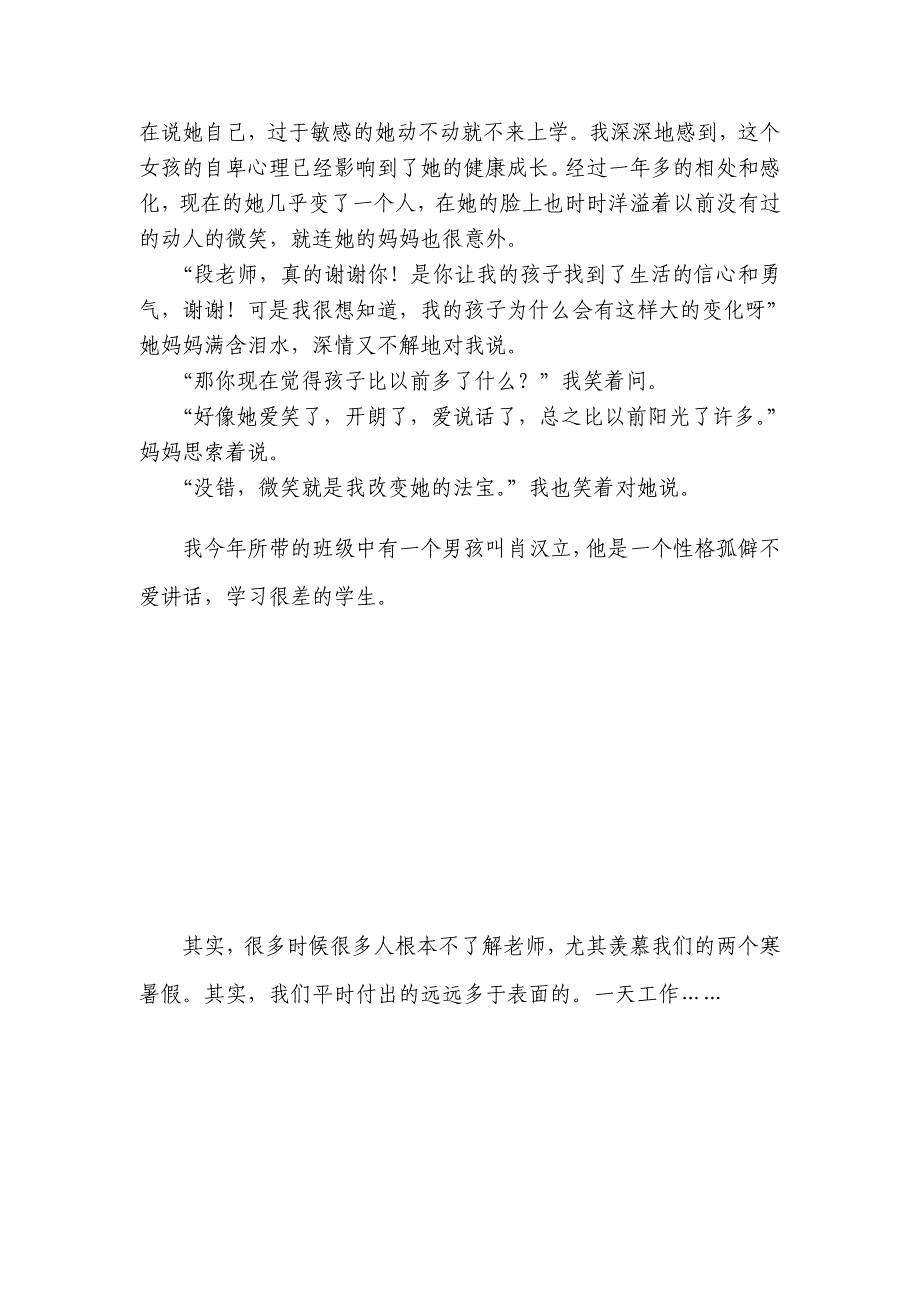 在说她自己，过于敏感的她动不动就不来上学。我深深地感到，这个
女孩的自卑心理已经影响到了她的健康成长。经过一年多的相处和感
化，现在的她几乎变了一个人，在她的脸上也时时洋溢着以前没有过
的动人的微笑，就连她的妈妈也很意外。
“段老师，真的谢谢你！是你让我的孩子找到了生活的信心和勇
气，谢谢！可是我很想知道，我的孩子为什么会有这样大的变化呀”
她妈妈满含泪水，深情又不解地对我说。
“那你现在觉得孩子比以前多了什么？”我笑着问。
“好像她爱笑了，开朗了，爱说话了，总之比以前阳光了许多。”
妈妈思索着说。
“没错，微笑就是我改变她的法宝。”我也笑着对她说。
我今年所带的班级中有一个男孩叫肖汉立，他是一个性格孤僻不
爱讲话，学习很差的学生。
其实，很多时候很多人根本不了解老师，尤其羡慕我们的两个寒
暑假。其实，我们平时付出的远远多于表面的。一天工作……